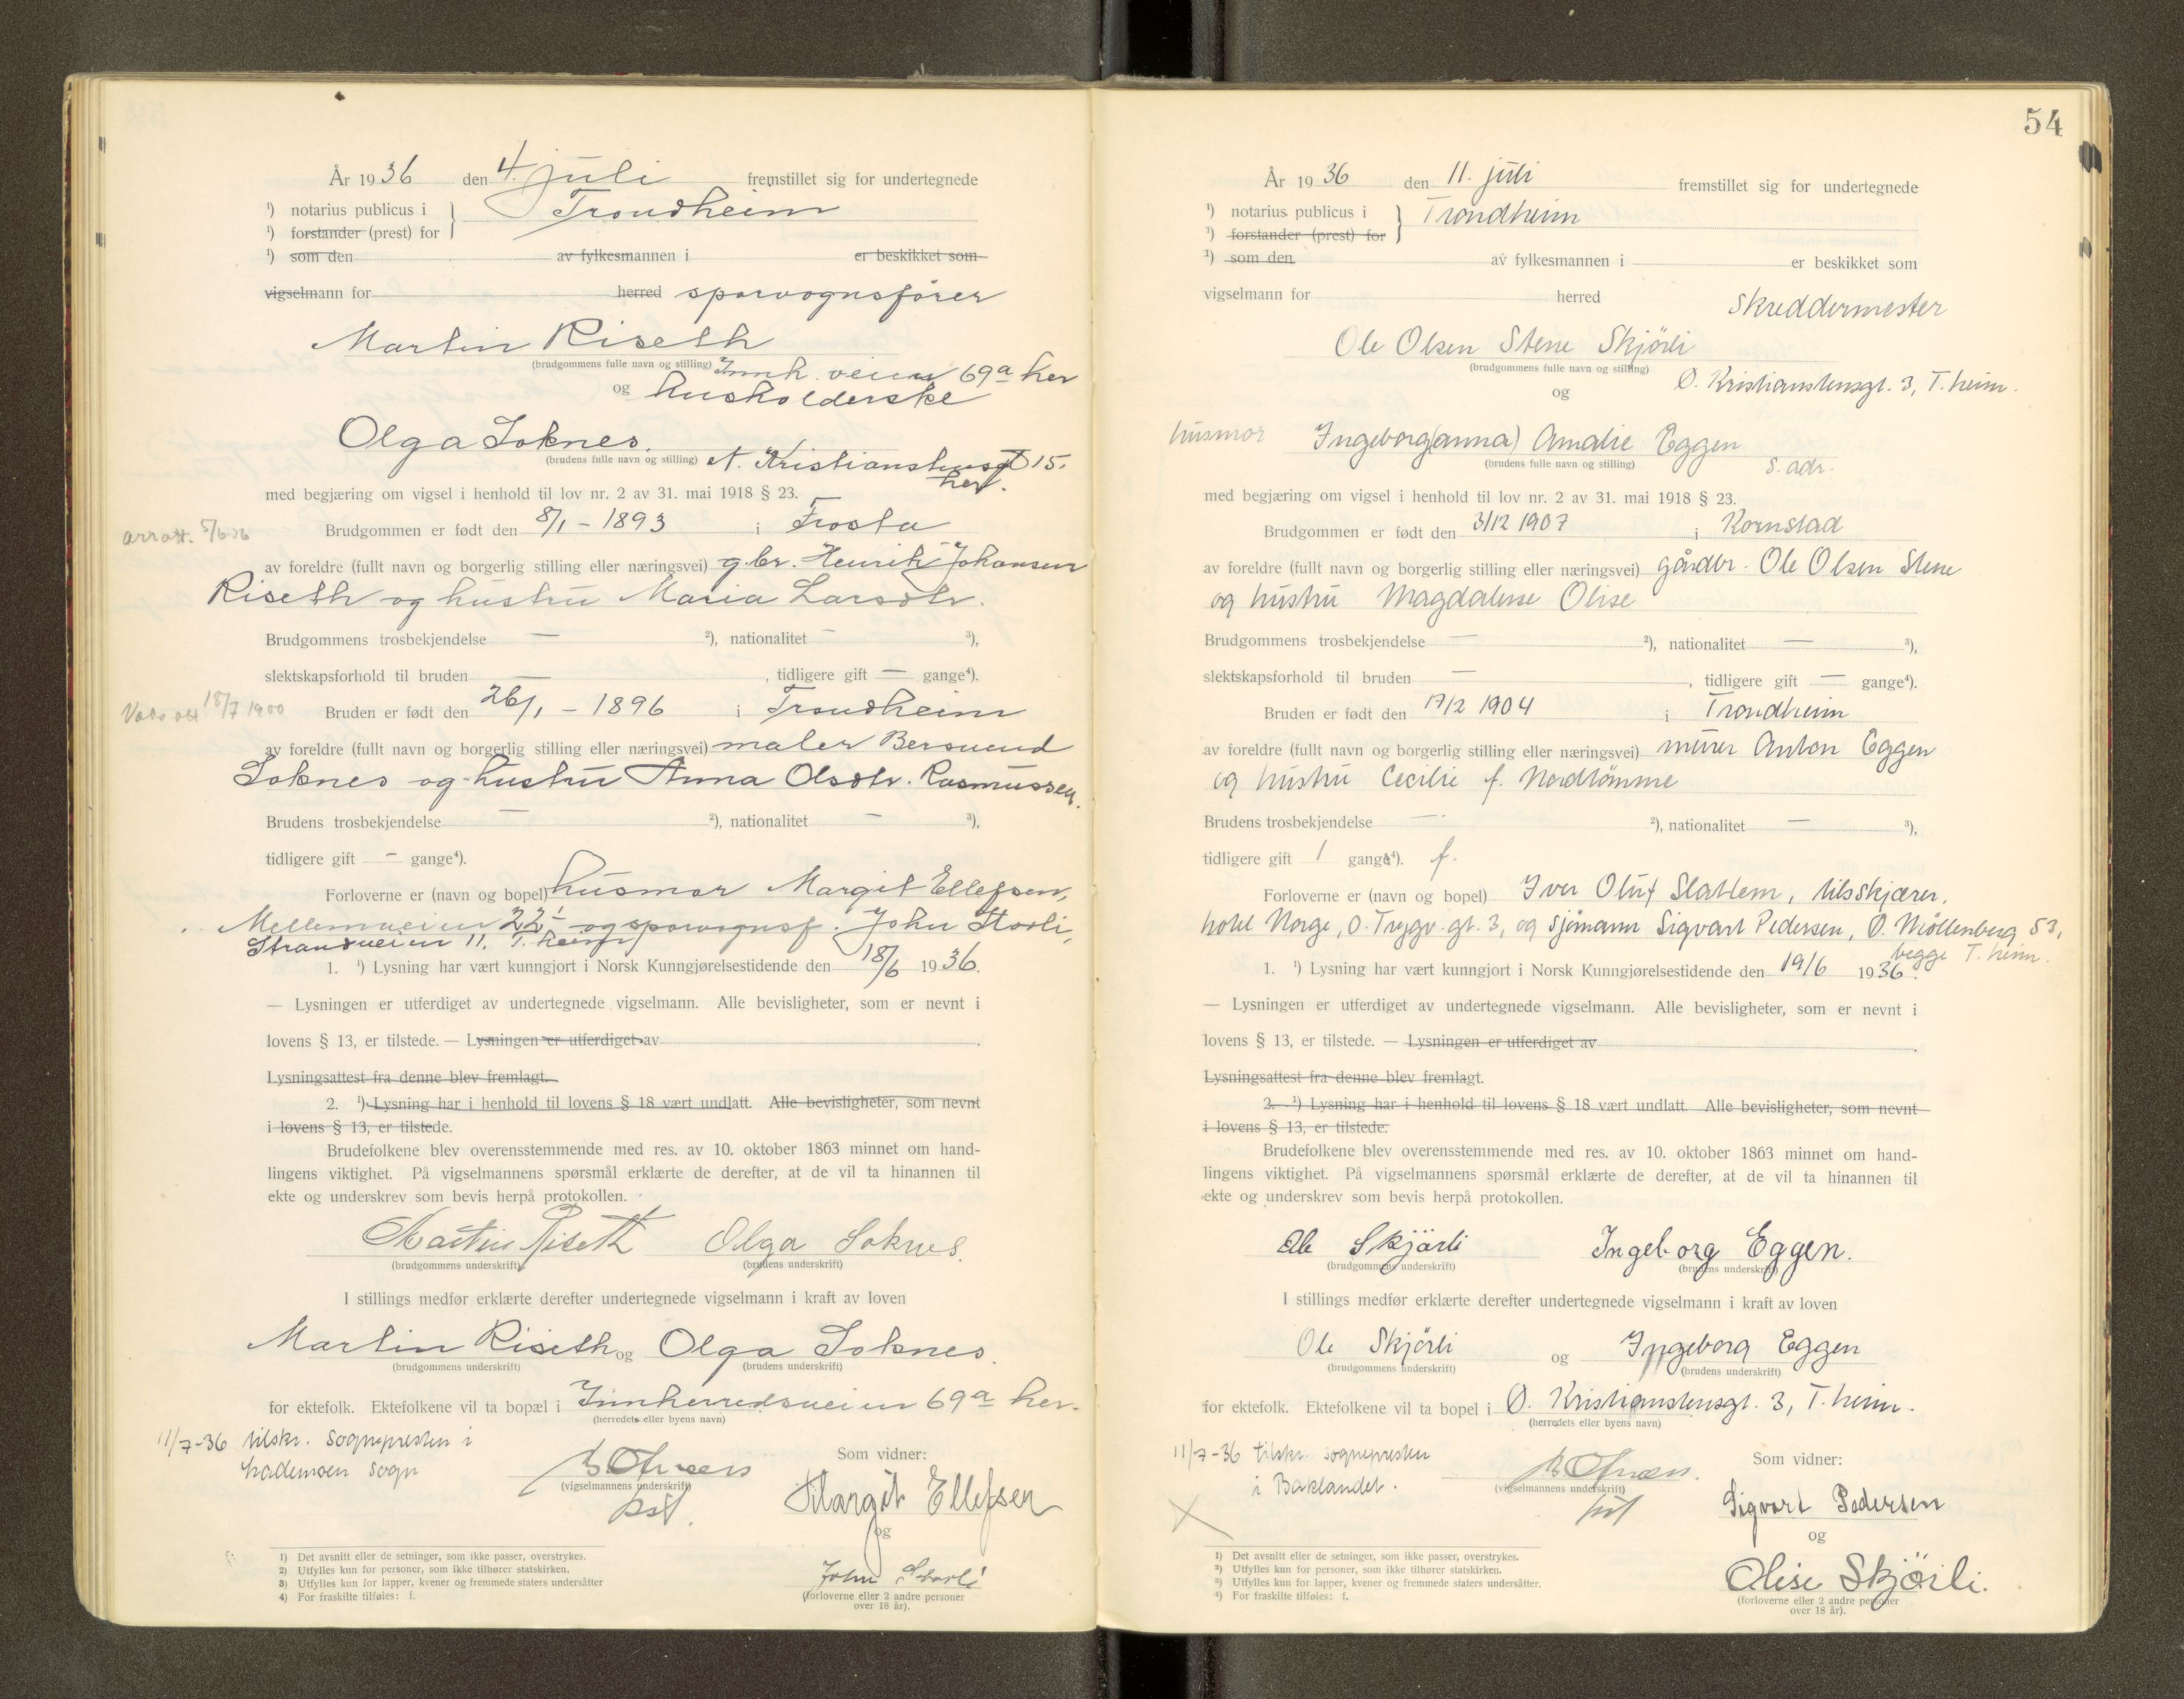 År 1936 den 4. juli fremstillet sig for undertegnede
¹) notarius publicus i } Trondheim
¹) forstander (prest) for
¹) som den av fylkesmannen i er beskikket som
vigselmann for herred sporvognsfører
Martin Riseth
(brudgommens fulle navn og stilling) Innh. veien 69a her
og husholderske
Olga Soknes.
(brudens fulle navn og stilling) N. Kristianstensgt 15.
her.
med begjæring om vigsel i henhold til lov nr. 2 av 31. mai 1918 § 23.
5/6-36 Brudgommen er født den 8/1 - 1893 i Frosta
av foreldre (fullt navn og borgerlig stilling eller næringsvei) g.br. Henrik Johansen
Riseth og hustru Maria Larsdtr.
Brudgommens trosbekjendelse — ²), nationalitet — ³),
slektskapsforhold til bruden — , tidligere gift — gange⁴).
18/7 1900 Bruden er født den 26/1 - 1896 i Trondheim
av foreldre (fullt navn og borgerlig stilling eller næringsvei) maler Bersvend
Soknes og hustru Anna Olsdtr. Rasmussen.
Brudens trosbekjendelse — ²), nationalitet — ³),
tidligere gift — gange⁴).
Forloverne er (navn og bopel) husmor Margit Ellefsen,
Mellemveien 22 og sporvognsf. John Storli,
Strandveien 11, T.heim
1. ¹) Lysning har vært kunngjort i Norsk Kunngjørelsestidende den 18/6 1936.
— Lysningen er utferdiget av undertegnede vigselmann. Alle bevisligheter, som er nevnt i
lovens § 13, er tilstede. — Lysningen er utferdiget av
Lysningsattest fra denne blev fremlagt.
2. ¹) Lysning har i henhold til lovens § 18 vært undlatt. Alle bevisligheter, som nevnt
i lovens § 13, er tilstede.
Brudefolkene blev overensstemmende med res. av 10. oktober 1863 minnet om hand-
lingens viktighet. På vigselmannens spørsmål erklærte de derefter, at de vil ta hinannen til
ekte og underskrev som bevis herpå protokollen.
Martin Riseth Olga Soknes.
(brudgommens underskrift) (brudens underskrift)
I stillings medfør erklærte derefter undertegnede vigselmann i kraft av loven
Martin Riseth og Olga Soknes.
(brudgommens underskrift) (brudens underskrift)
for ektefolk. Ektefolkene vil ta bopæl i Innherredsveien 69a her.
(herredets eller byens navn)
11/7-36 tilskr. Sognepresten i
Lademoen sogn
Som vidner:
(vigselmannens underskrift)
Margit Ellefsen
og
John Storli
(forloverne eller 2 andre personer
over 18 år).
1) Det avsnitt eller de setninger, som ikke passer, overstrykes.
2) Utfylles kun for personer, som ikke tilhører statskirken.
3) Utfylles kun for lapper, kvener og fremmede staters undersåtter
4) For fraskilte tilføies: f.
54
År 1936 den 11. juli fremstillet sig for undertegnede
¹) notarius publicus i } Trondheim
¹) forstander (prest) for
¹) som den av fylkesmannen i er beskikket som
vigselmann for herred Skreddermester
Ole Olsen Stene Skjörli
(brudgommens fulle navn og stilling)
og Ø. Kristianstensgt. 3, T.heim.
husmor Ingeborg (Anna) Amalie Eggen
(brudens fulle navn og stilling) s. adr.
med begjæring om vigsel i henhold til lov nr. 2 av 31. mai 1918 § 23.
Brudgommen er født den 3/12 1907 i Kornstad
av foreldre (fullt navn og borgerlig stilling eller næringsvei) gårdbr. Ole Olsen Stene
og hustru Magdalene Olise
Brudgommens trosbekjendelse — ²), nationalitet — ³),
slektskapsforhold til bruden — , tidligere gift — gange⁴).
Bruden er født den 17/2 1904 i Trondheim
av foreldre (fullt navn og borgerlig stilling eller næringsvei) murer Anton Eggen
og hustru Cecilie f. Nordtömme
Brudens trosbekjendelse — ²), nationalitet — ³),
tidligere gift 1 gange⁴). f.
Forloverne er (navn og bopel) Iver Oluf Slattem, tilskjærer,
hotel Norge, O. Trygv. gt. 3, og sjömann Sigvart Pedersen, Ø. Möllenberg 53,
begge T.heim.
1. ¹) Lysning har vært kunngjort i Norsk Kunngjørelsestidende den 19/6 1936.
— Lysningen er utferdiget av undertegnede vigselmann. Alle bevisligheter, som er nevnt i
lovens § 13, er tilstede. — Lysningen er utferdiget av
Lysningsattest fra denne blev fremlagt.
2. ¹) Lysning har i henhold til lovens § 18 vært undlatt. Alle bevisligheter, som nevnt
i lovens § 13, er tilstede.
Brudefolkene blev overensstemmende med res. av 10. oktober 1863 minnet om hand-
lingens viktighet. På vigselmannens spørsmål erklærte de derefter, at de vil ta hinannen til
ekte og underskrev som bevis herpå protokollen.
Ole Skjörli Ingeborg Eggen.
(brudgommens underskrift) (brudens underskrift)
I stillings medfør erklærte derefter undertegnede vigselmann i kraft av loven
Ole Skjörli og Ingeborg Eggen
(brudgommens underskrift) (brudens underskrift)
for ektefolk. Ektefolkene vil ta bopel i Ø. Kristianstensgt. 3, T.heim.
(herredets eller byens navn)
11/7-36 tilskr. sognepresten
i Baklandet.
Som vidner:
(vigselmannens underskrift)
Sigvart Pedersen
og
Olise Skjörli.
(forloverne eller 2 andre personer
over 18 år).
1) Det avsnitt eller de setninger, som ikke passer, overstrykes.
2) Utfylles kun for personer, som ikke tilhører statskirken.
3) Utfylles kun for lapper, kvener og fremmede staters undersåtter.
4) For fraskilte tilføies: f.